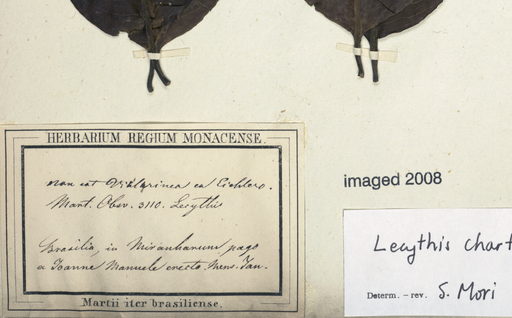 HERBARIUM REGIUM MONACENSE.
non est
Mart. Obsv. 3110. Lecythis
Brasilia, in Miranharum pago
a Joanne Manuele erecto. Mens. Jan.
Martii iter brasiliense.
imaged 2008
Lecythis chart
Determ. – rev. S. Mori